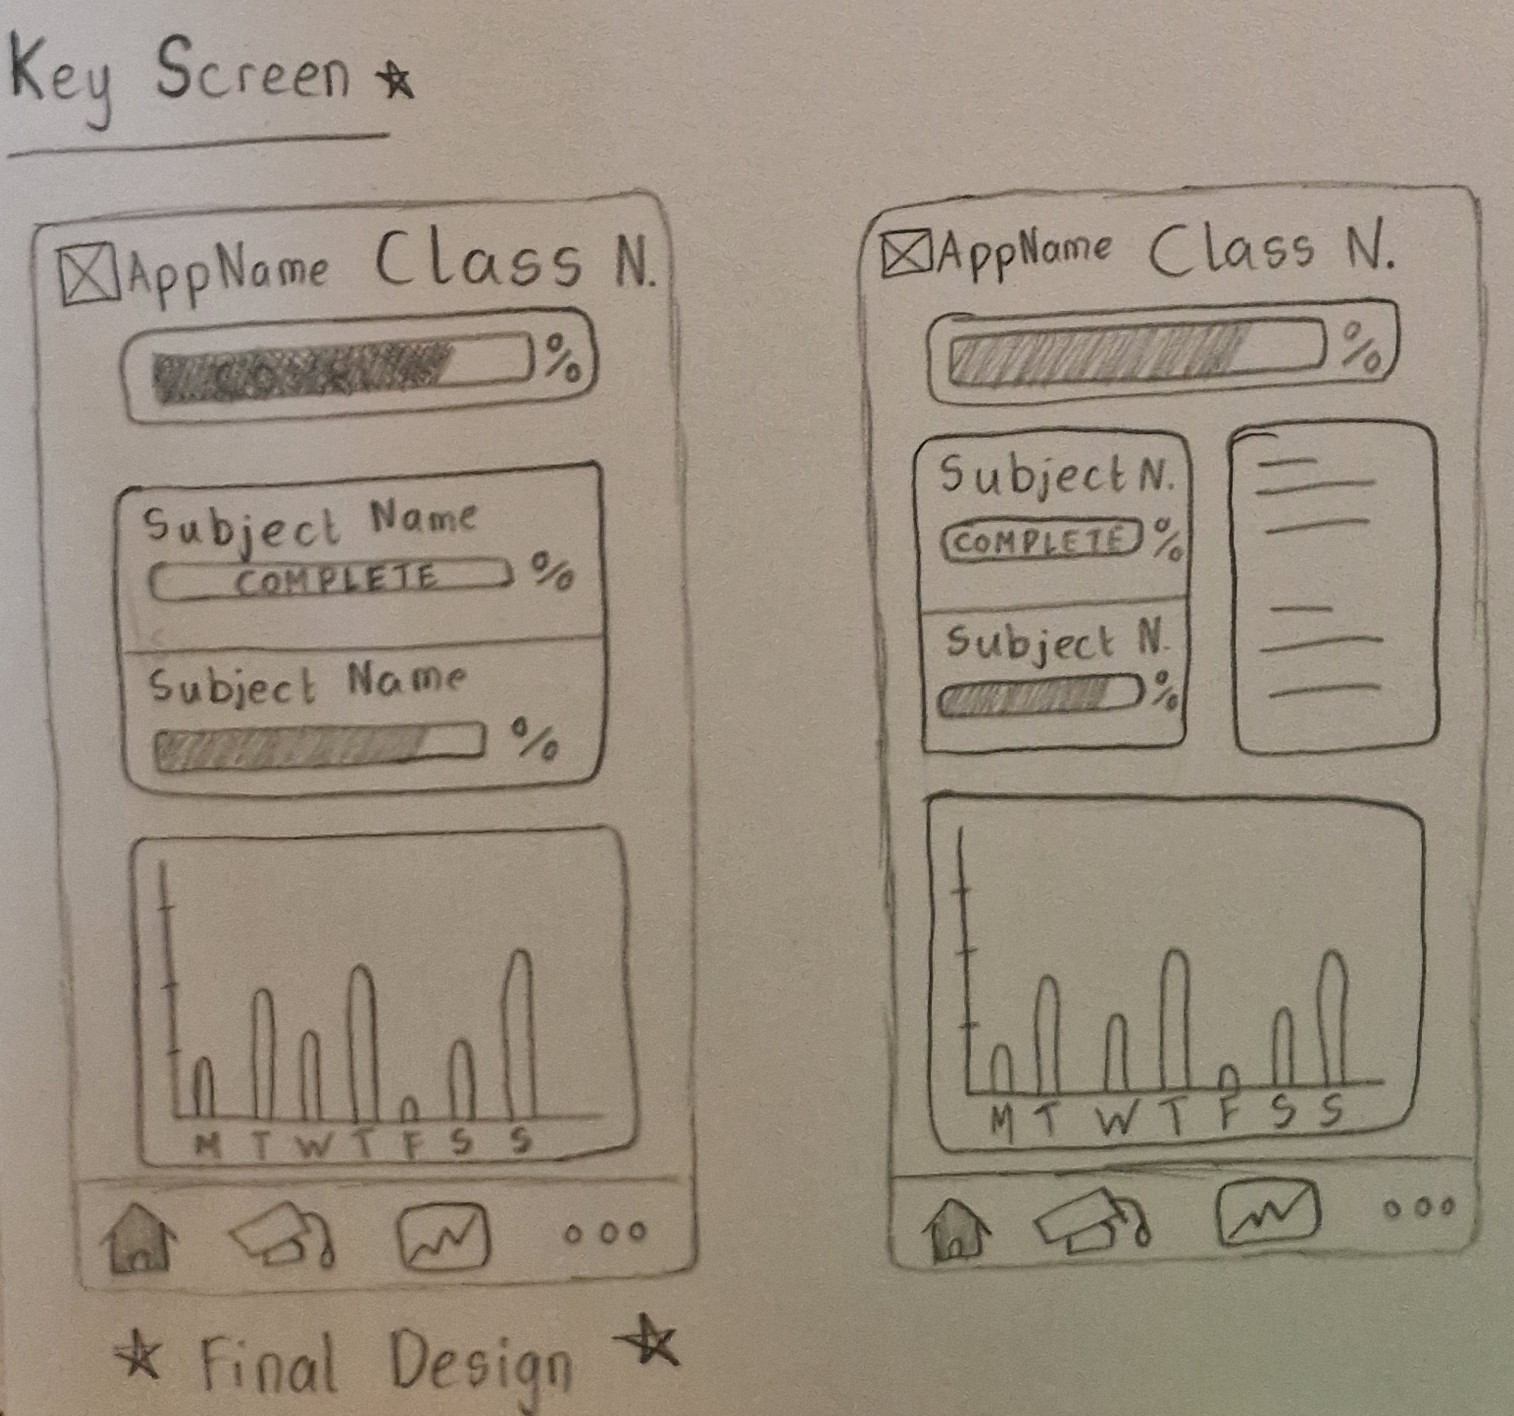 Key Screen
AppName Class N.
%
Subject Name
COMPLETE %
Subject Name
%
M T W T F S S
Final Design
AppName Class N.
%
Subject N.
COMPLETE %
Subject N.
%
M T W T F S S